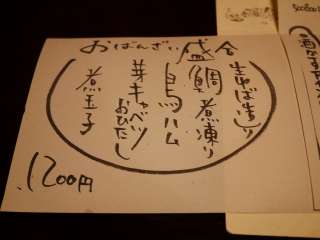 おばんざい盛合
生ゆば造り
鯛煮凍り
鳥ハム
芽キャベツ
おひたし
煮玉子
1200円